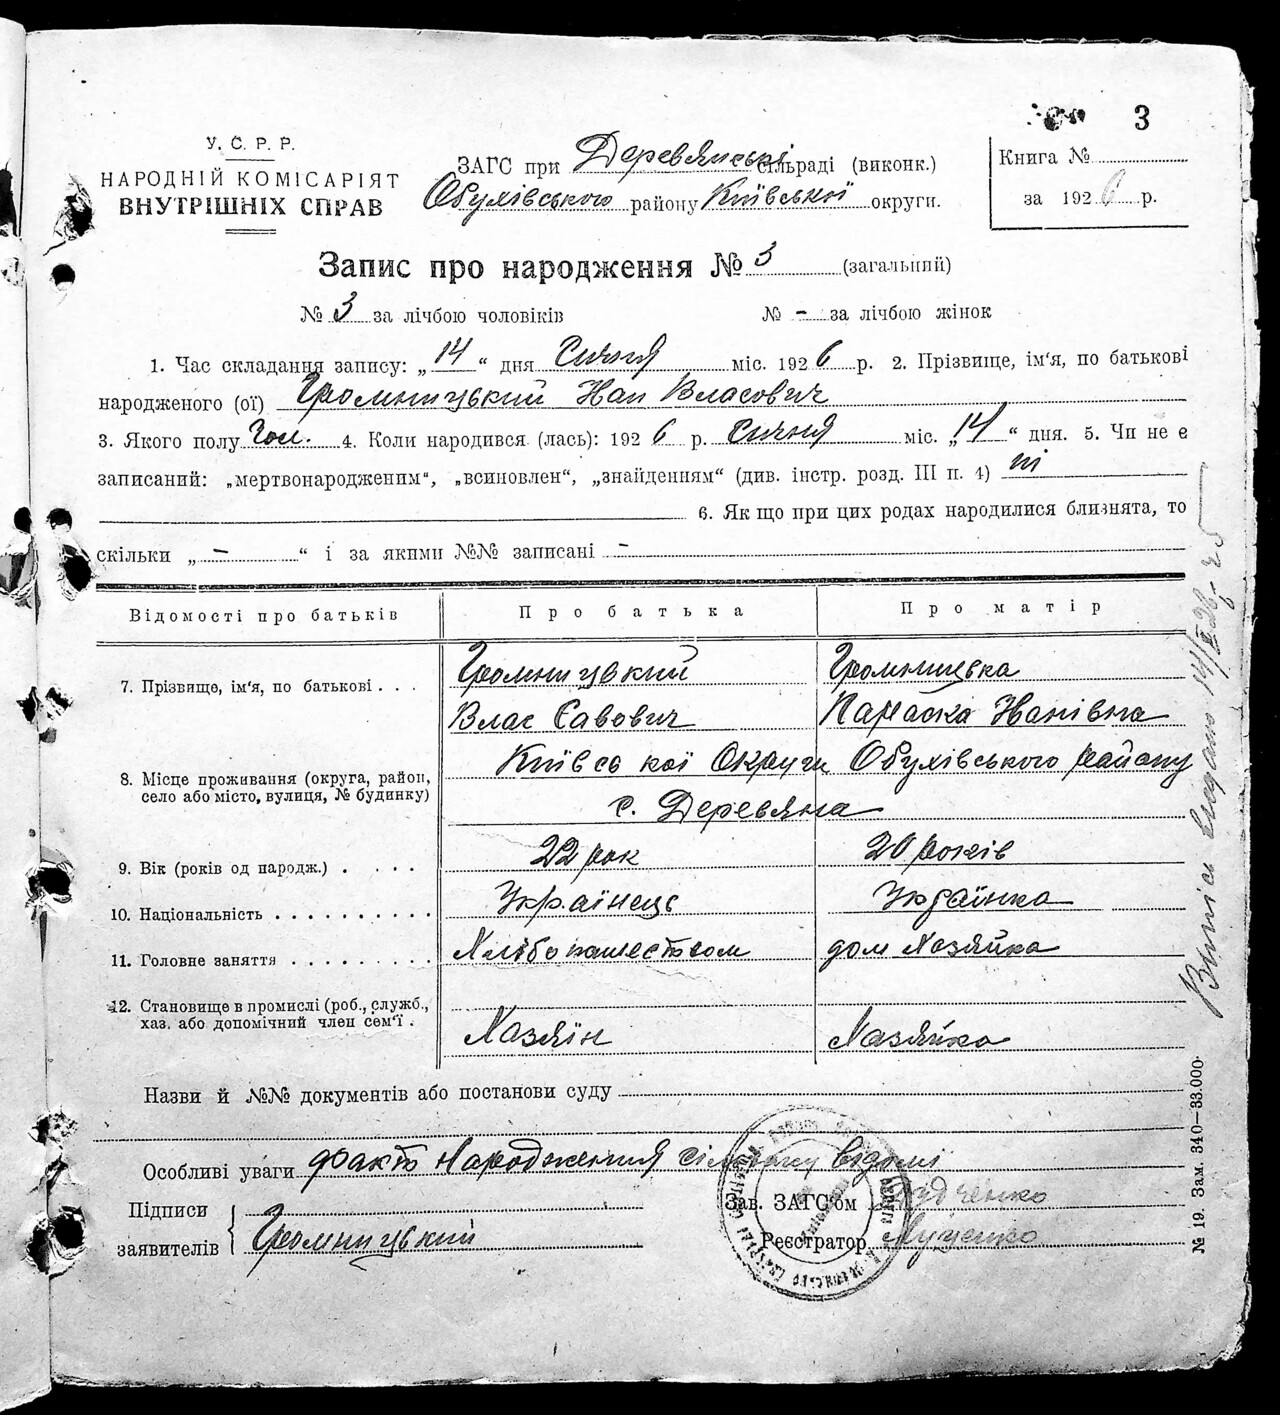 3
У. С. Р. Р.
НАРОДНІЙ КОМІСАРІЯТ
ВНУТРІШНІХ СПРАВ
ЗАГС при Деревянські сільраді (виконк.)
Обухівського району Київської округи.
Книга №
за 1926 р.
Запис про народження № 3 (загальний)
№ 3 за лічбою чоловіків № - за лічбою жінок
1. Час складання запису: „14“ дня Січня міс. 1926 р. 2. Прізвище, ім'я, по батькові
народженого (ої) Громницький Іван Власович
3. Якого полу Чол. 4. Коли народився (лась): 1926 р. Січня міс. „14“ дня. 5. Чи не є
записаний: „мертвонародженим“, „всиновлен“, „знайденням“ (див. інстр. розд. III п. 4) ні
6. Якщо при цих родах народилися близнята, то
скільки „-“ і за якими №№ записані -
Відомості про батьків Про батька Про матір
7. Прізвище, ім'я, по батькові . . . Громницький Громницька
Влас Савович Параска Іванівна
8. Місце проживання (округа, район, село або місто, вулиця, № будинку) Київської Округи Обухівського району
с. Деревяна
9. Вік (років од народж.) . . . . 22 рок 20 років
10. Національність . . . . . . . . . . Українець Українка
11. Головне заняття . . . . . . . . . Хлібопашеством дом Хазяйка
12. Становище в промислі (роб., служб.,
хаз. або допомічний член сем'ї . Хазяїн Хазяйка
Назви й №№ документів або постанови суду
Особливі уваги факт Народження сільраду відомі
Підписи
заявителів Громницький
Зав. ЗАГС'ом
Реєстратор Луценко
№ 19. Зам. 340—33.000.